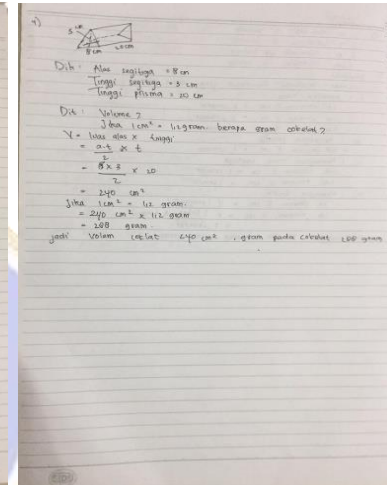 4)
5 cm
8 cm 20 cm
Dik : Alas segitiga = 8 cm
Tinggi segitiga = 3 cm
Tinggi prisma = 20 cm
Dit : Volume ?
Jika 1 cm² = 1,2 gram. berapa gram cokelat ?
V = luas alas x tinggi
= a.t x t
2
= 8 x 3 x 20
2
= 240 cm²
Jika 1 cm² = 1,2 gram.
= 240 cm² x 1,2 gram
= 288 gram
jadi Volum coklat 240 cm², gram pada cokelat 288 gram